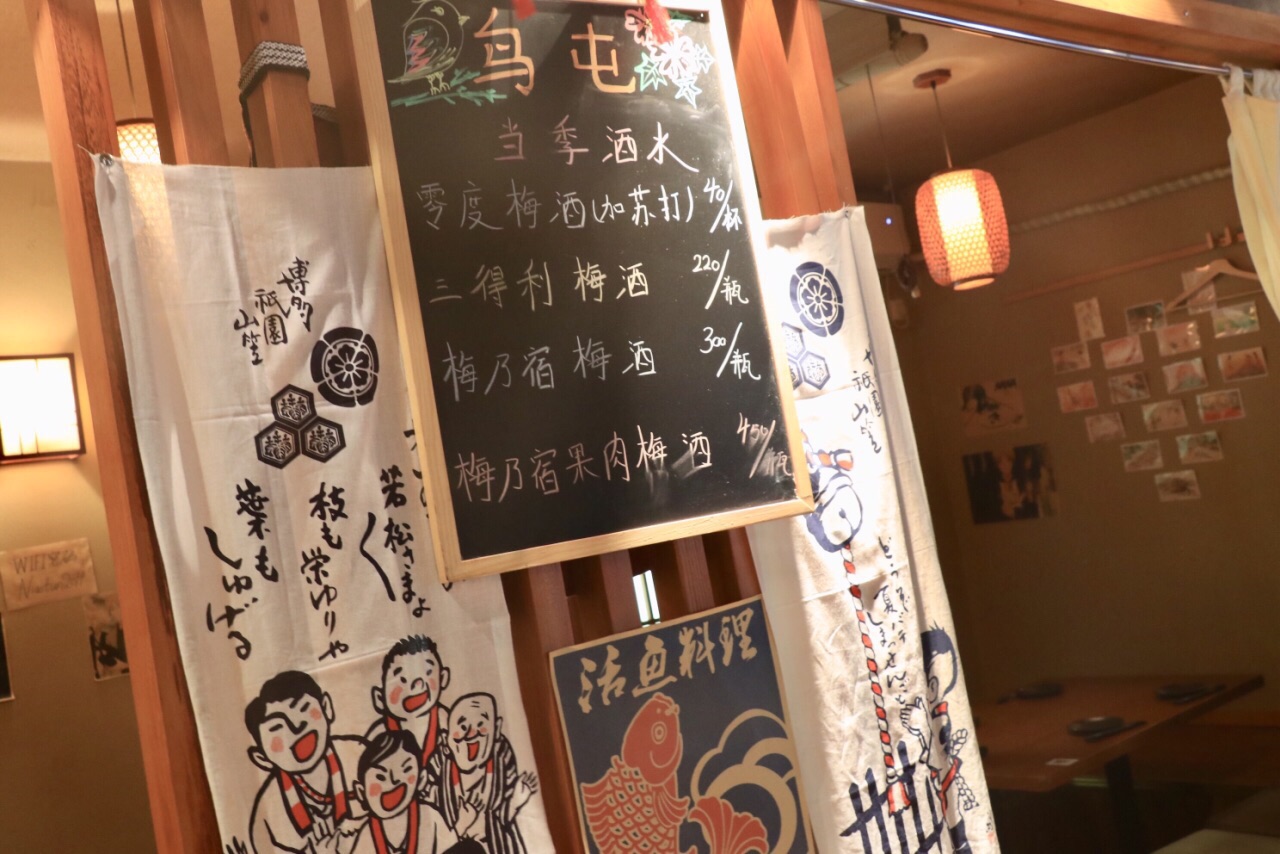 鸟屯
当季酒水
零度梅酒(加苏打) 40/杯
三得利梅酒 220/瓶
梅乃宿梅酒 300/瓶
梅乃宿果肉梅酒 450/瓶
博多
祇園
山笠
若松さまよ
枝も栄ゆりゃ
葉も
しゅげる
活魚料理
祇園
山笠
WIFI